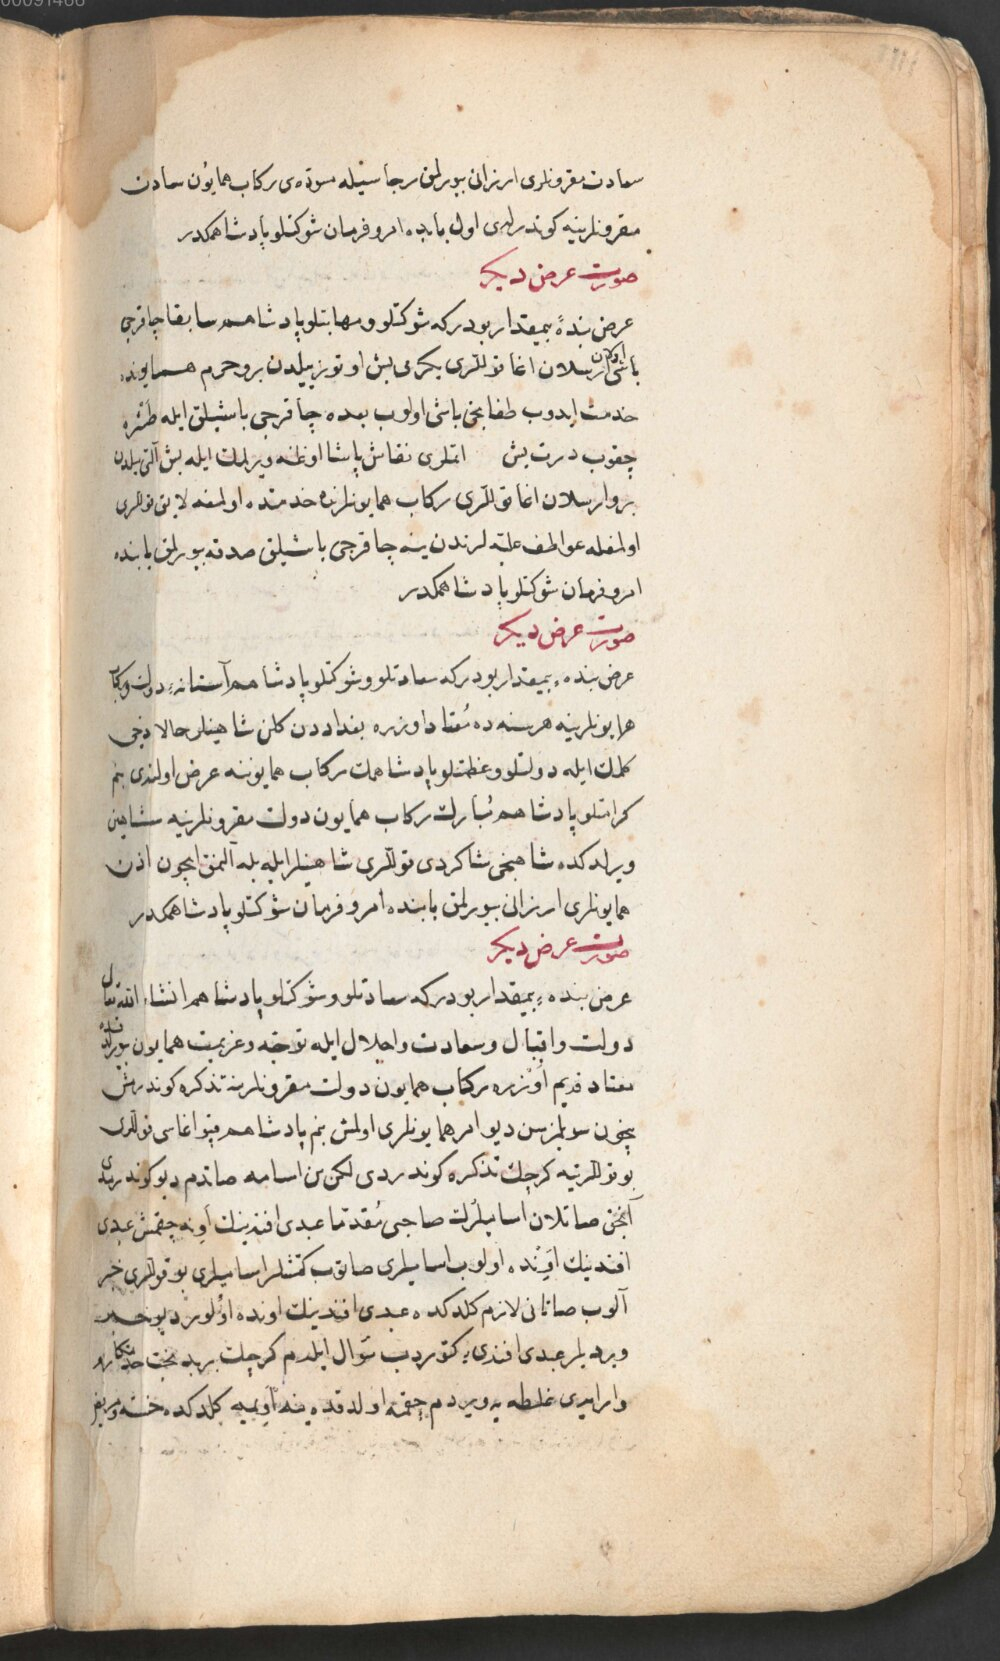 00091466
سعادت مقرونلری ارزانی بیورلمق رجاسیله مسوّده‌ی رکاب همایون سعادت
مقرونلرینه کوندرلدی اول بابده امر و فرمان شوکتلو پادشاهمکدر
صورت عرض دیکر
عرض بندهٔ بیمقدار بودرکه شوکتلو و مهابتلو پادشاهم سابقا چاقرجی
باشی اولان ارسلان اغا قوللری یکرمی بش اوتوز ییلدن برو حرم همایونده
خدمت ایدوب طغانجی باشی اولوب بعده چاقرجی باشیلق ایله طشره
چقوب درت بش اتملری نقاش پاشا اوغلنه ویرلمك ایله بش آلتی ییلدن
برو ارسلان اغا قوللری رکاب همایونلرنده خدمتده اولمغه لایق قوللری
اولمغله عواطف علیّه لرندن ینه چاقرجی باشیلق صدقه بیورلمق بابنده
امر و فرمان شوکتلو پادشاهمکدر
صورت عرض دیکر
عرض بنده‌ء بیمقدار بودرکه سعادتلو و شوکتلو پادشاهم آستانهء دولت و رکاب
همایونلرینه هر سنه ده مُعتاد اوزره بغداددن کلن شاهینلر حالا دخی
کلمك ایله دولتلو و عظمتلو پادشاهمك رکاب همایوننه عرض اولندی بنم
کرامتلو پادشاهم مُبارك رکاب همایون دولت مقرونلرینه شاهین
ویرلدکده شاهینجی شاکردی قوللری شاهینلر ایله بله آلمنق ایچون اذن
همایونلری ارزانی بیورلمق بابنده امر و فرمان شوکتلو پادشاهمکدر
صورت عرض دیکر
عرض بنده‌ء بیمقدار بودرکه سعادتلو و شوکتلو پادشاهم انشاء الله تعالی
دولت و اقبال و سعادت و اجلال ایله توجّه و عزیمت همایون بیورلدقده
معتاد قدیم اوزره رکاب همایون دولت مقرونلرینه تذکره کوندرمش
یچون سویلمزسن دیو امر همایونلری اولمش بنم پادشاهم قپو اغاسی قوللری
بو قوللرینه کرچك تذکره کوندردی لکن بن اسامه صاتدم دیو کوندرمدی
آنجق صاتلان اسامیلرك صاحبی مُقدّما عبدی افندینك اَونه چقمش عبدی
افندینك اَونده اولوب اسامیلری صاتوب کتمشلر اسامیلری بو قوللری خبر
آلوب صاتانی لازم کلدکده عبدی افندینك اونده اوُلور دیو خبر
ویردیلر عبدی افندیء کتوردب سؤال ایلدم کرچك بر بدبخت خدمتکارم
وار ایدی غلطه یه ویردم چقمه اولدقده ینه اَویمه کلدکده خسته و مریض